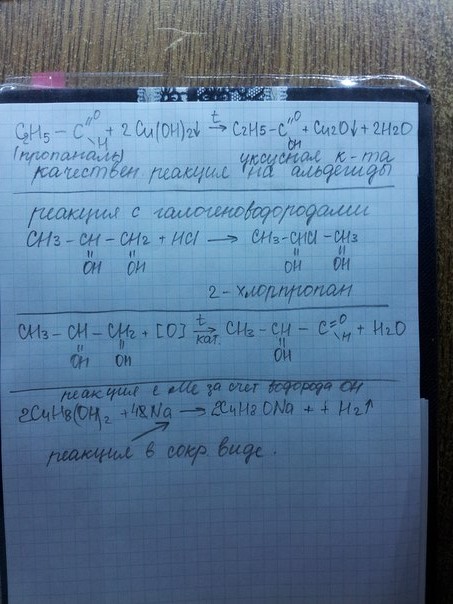 C2H5 – C =O H + 2 Cu(OH)2↓ t→ C2H5 – C =O OH + Cu2O↓ + 2H2O
(пропаналь) уксусная к-та
качествен реакция на альдегиды
реакция с галогеноводородами
CH3 – CH – CH2 + HCl → CH3 – CHCl – CH3
OH OH OH OH
2 - хлорпропан
CH3 – CH – CH2 + [O] t→ кат. CH3 – CH – C =O H + H2O
OH OH OH
реакция с Me за счет водорода OH
2C4H8(OH)2 + Na → 2C4H8ONa + + H2↑
реакция в сокр виде.